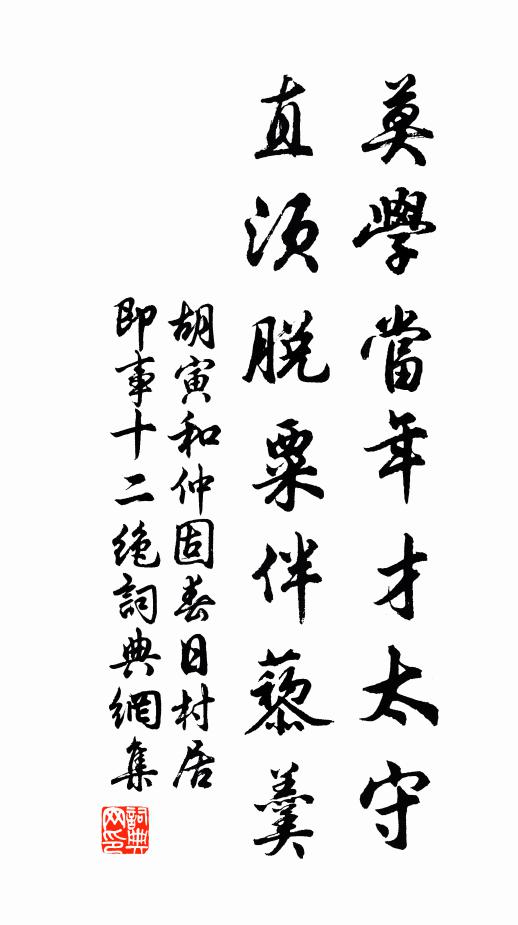 莫學當年才太守
直須脫粟伴藜羹
胡寅和仲固春日村居
即事十二絕詞典網集
詞典網印